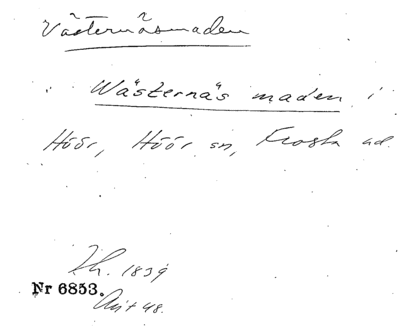 Västernäsmaden
Wästernäs maden i
Höör, Höör sn, Frosta hd.
Lh. 1839
Nr 6853.
Avit 48.